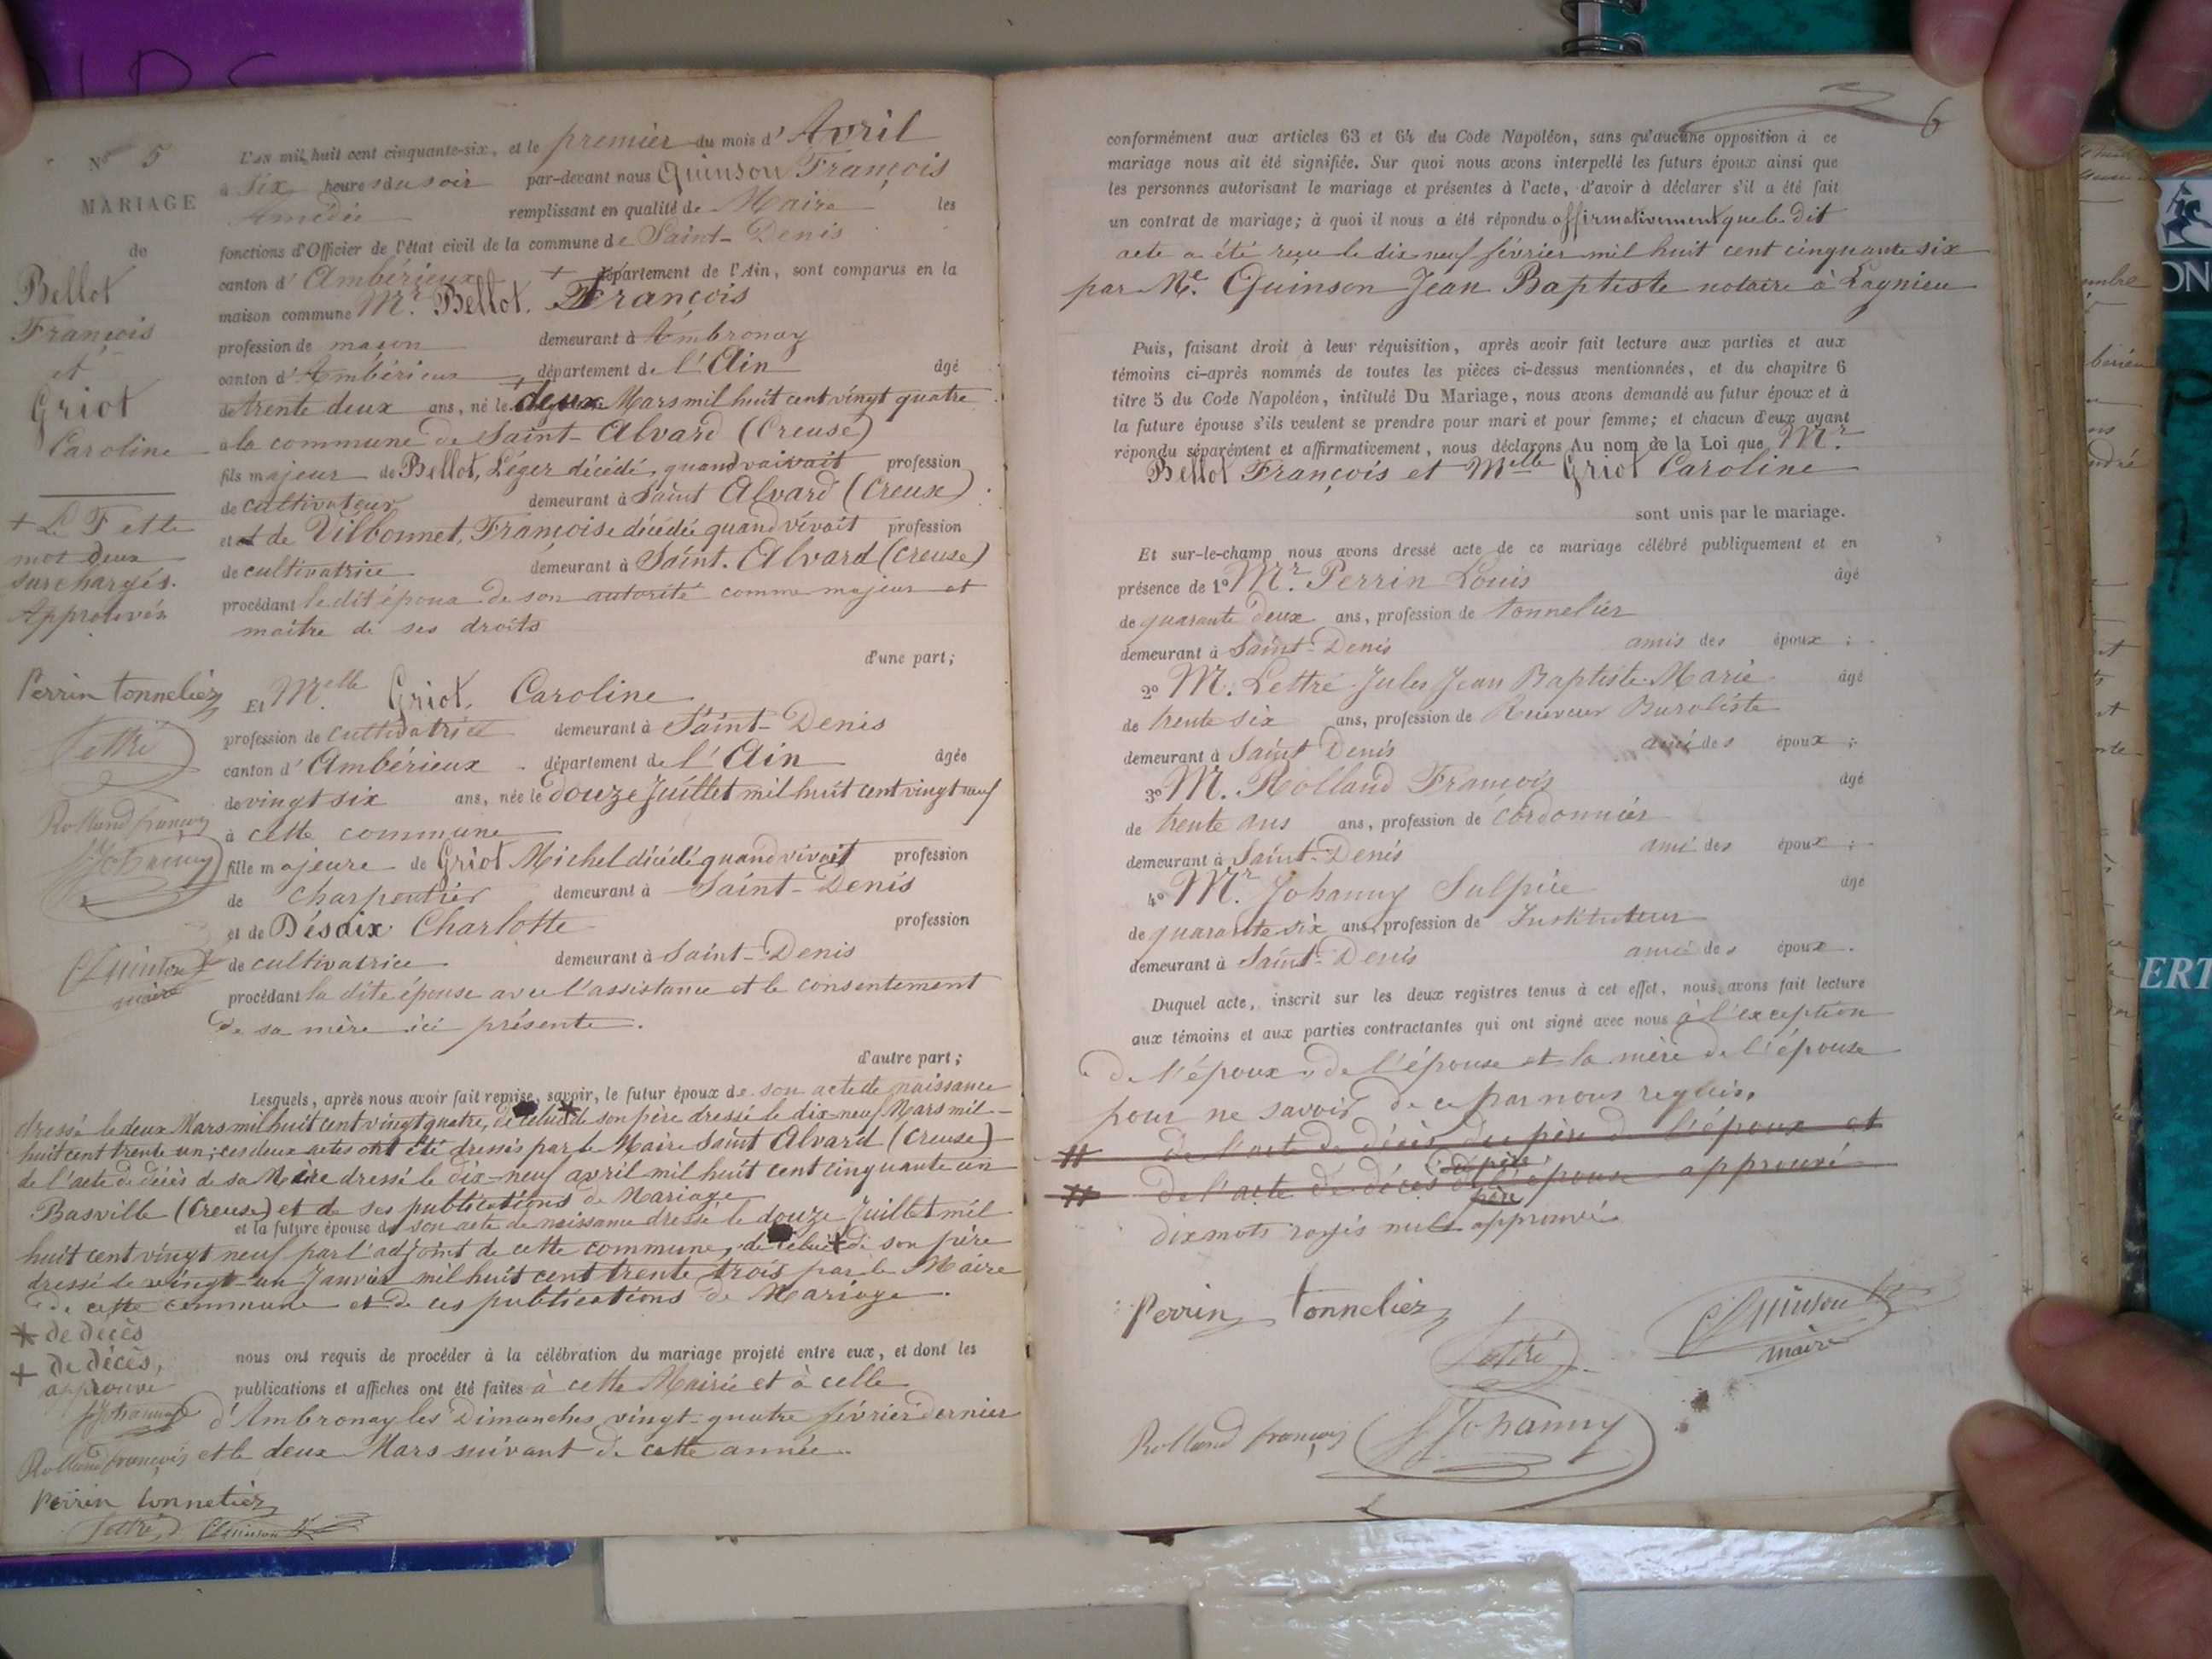 N° 5
MARIAGE
de
Bellot
François
et
Griot
Caroline
+ Le F et le
mot deux
surchargés.
Approuvés
Perrin tonnelier
Lettré
Rolland françois
Johanny
Quinson
maire
L'an mil huit cent cinquante-six, et le premier du mois d'Avril
à Six heures du soir par-devant nous Quinson François
Amédée remplissant en qualité de Maire les
fonctions d'Officier de l'état civil de la commune de Saint-Denis
canton d'Ambérieux département de l'Ain, sont comparus en la
maison commune Mr. Bellot, + François
profession de maçon demeurant à Ambronay
canton d'Ambérieux département de l'Ain âgé
de trente deux ans, né le + deux Mars mil huit cent vingt quatre
à la commune de Saint-Alvard (Creuse)
fils majeur de Bellot, Léger décédé, quand vaivait profession
de cultivateur demeurant à Saint Alvard (Creuse)
et de Vilbonnet, Françoise décédée quand vivait profession
de cultivatrice demeurant à Saint. Alvard (Creuse)
procédant le dit époux de son autorité comme majeur et
maître de ses droits
d'une part;
Et Melle Griot, Caroline
profession de cultivatrice demeurant à Saint-Denis
canton d'Ambérieux département de l'Ain âgée
de vingt six ans, née le douze Juillet mil huit cent vingt neuf
à cette commune
fille majeure de Griot Michel décédé quand vivait profession
de Charpentier demeurant à Saint-Denis
et de Désaix Charlotte profession
de cultivatrice demeurant à Saint-Denis
procédant la dite épouse avec l'assistance et le consentement
de sa mère ici présente.
d'autre part;
Lesquels, après nous avoir fait remise, savoir, le futur époux de son acte de naissance
dressé le deux Mars mil huit cent vingt quatre, de celui * de son père dressé le dix-neuf Mars mil
huit cent trente un; ces deux actes ont été dressés par le Maire Saint Alvard (Creuse)
de l'acte de décès de sa Mère dressé le dix-neuf avril mil huit cent cinquante un
Basville (Creuse) et de ses publications de Mariage
et la future épouse de son acte de naissance dressé le douze Juillet mil
huit cent vingt neuf par l'adjoint de cette commune, de celui + de son père
dressé le vingt-un Janvier mil huit cent trente trois par le Maire
de cette commune et de ces publications de Mariage.
* de décès
+ de décès,
approuvé
nous ont requis de procéder à la célébration du mariage projeté entre eux, et dont les
publications et affiches ont été faites à cette Mairie et à celle
d'Ambronay les Dimanches vingt-quatre février dernier
et le deux Mars suivant de cette année.
Johanny
Rolland françois
Perrin tonnelier
Lettré Quinson
6
conformément aux articles 63 et 64 du Code Napoléon, sans qu'aucune opposition à ce
mariage nous ait été signifiée. Sur quoi nous avons interpellé les futurs époux ainsi que
les personnes autorisant le mariage et présentes à l'acte, d'avoir à déclarer s'il a été fait
un contrat de mariage; à quoi il nous a été répondu affirmativement que le dit
acte a été reçu le dix neuf février mil huit cent cinquante six
par Me. Quinson Jean Baptiste notaire à Lagnieu
Puis, faisant droit à leur réquisition, après avoir fait lecture aux parties et aux
témoins ci-après nommés de toutes les pièces ci-dessus mentionnées, et du chapitre 6
titre 5 du Code Napoléon, intitulé Du Mariage, nous avons demandé au futur époux et à
la future épouse s'ils veulent se prendre pour mari et pour femme; et chacun d'eux ayant
répondu séparément et affirmativement, nous déclarons Au nom de la Loi que Mr.
Bellot François et Melle Griot Caroline
sont unis par le mariage.
Et sur-le-champ nous avons dressé acte de ce mariage célébré publiquement et en
présence de 1° Mr. Perrin Louis âgé
de quarante deux ans, profession de tonnelier
demeurant à Saint-Denis amis des époux;
2° M. Lettré Jules Jean Baptiste Marie âgé
de trente six ans, profession de Receveur Buraliste
demeurant à Saint Denis ami des époux;
3° M. Rolland François âgé
de trente ans ans, profession de cordonnier
demeurant à Saint-Denis ami des époux;
4° Mr. Johanny Sulpice âgé
de quarante six ans, profession de Instituteur
demeurant à Saint-Denis ami des époux.
Duquel acte, inscrit sur les deux registres tenus à cet effet, nous avons fait lecture
aux témoins et aux parties contractantes qui ont signé avec nous à l'exception
de l'époux, de l'épouse et la mère de l'épouse
pour ne savoir de ce par nous requis.
# de l'acte de décès du père de l'époux et
# de l'acte de décès du père de l'épouse approuvé
père
dix mots rayés nuls approuvé
Perrin tonnelier
Lettré
Quinson
maire
Rolland françois
Johanny
ON
ERT